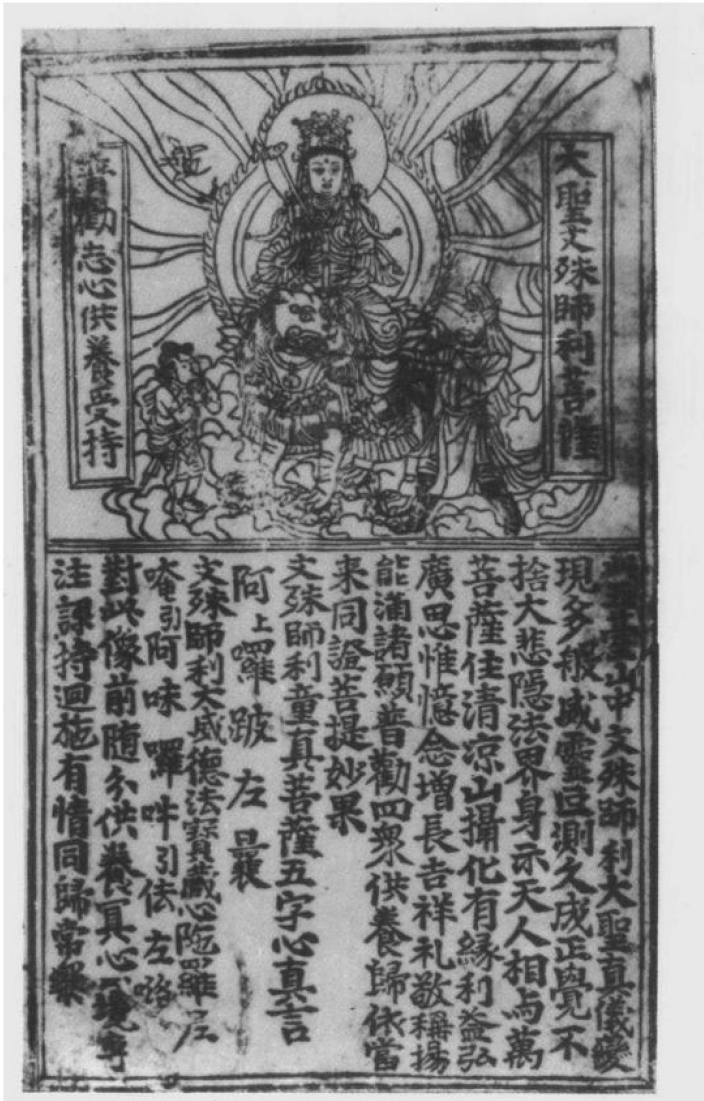 大聖文殊師利菩薩
普勸志心供養受持
臺山中文殊師利大聖真儀變
現多般威靈叵測久成正覺不
捨大悲隱法界身示天人相与萬
菩薩住清凉山攝化有緣利益弘
廣思惟憶念增長吉祥礼敬稱揚
能滿諸願普勸四衆供養歸依當
来同證菩提妙果
文殊師利童真菩薩五字心真言
阿上囉跛左曩
文殊師利大威德法寶藏心陁羅尼
唵引阿味囉吽引佉左
對此像前随分供養冥心一境專
注課持迴施有情同歸常樂